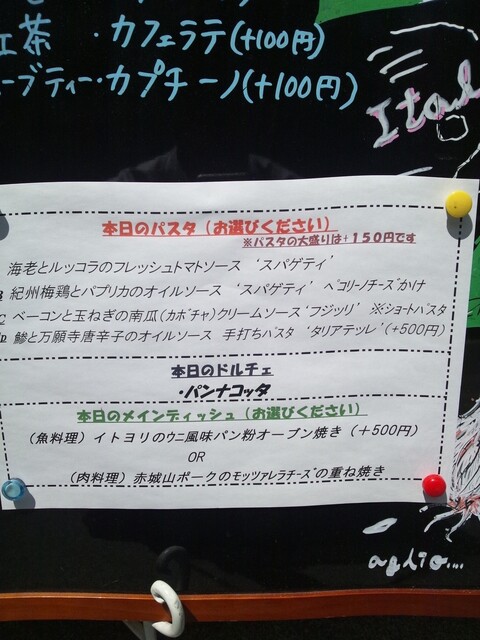 紅茶 ・カフェラテ(+100円)
ーブティー・カプチーノ(+100円)
Ital
本日のパスタ(お選びください)
※パスタの大盛りは+150円です
海老とルッコラのフレッシュトマトソース ‘スパゲティ’
B 紀州梅鶏とパプリカのオイルソース ‘スパゲティ’ ペコリーノチーズかけ
C ベーコンと玉ねぎの南瓜(カボチャ)クリームソース‘フジッリ’ ※ショートパスタ
D 鯵と万願寺唐辛子のオイルソース 手打ちパスタ ‘タリアテッレ’(+500円)
本日のドルチェ
・パンナコッタ
本日のメインディッシュ(お選びください)
(魚料理)イトヨリのウニ風味パン粉オーブン焼き(+500円)
OR
(肉料理)赤城山ポークのモッツァレラチーズの重ね焼き
aglio...